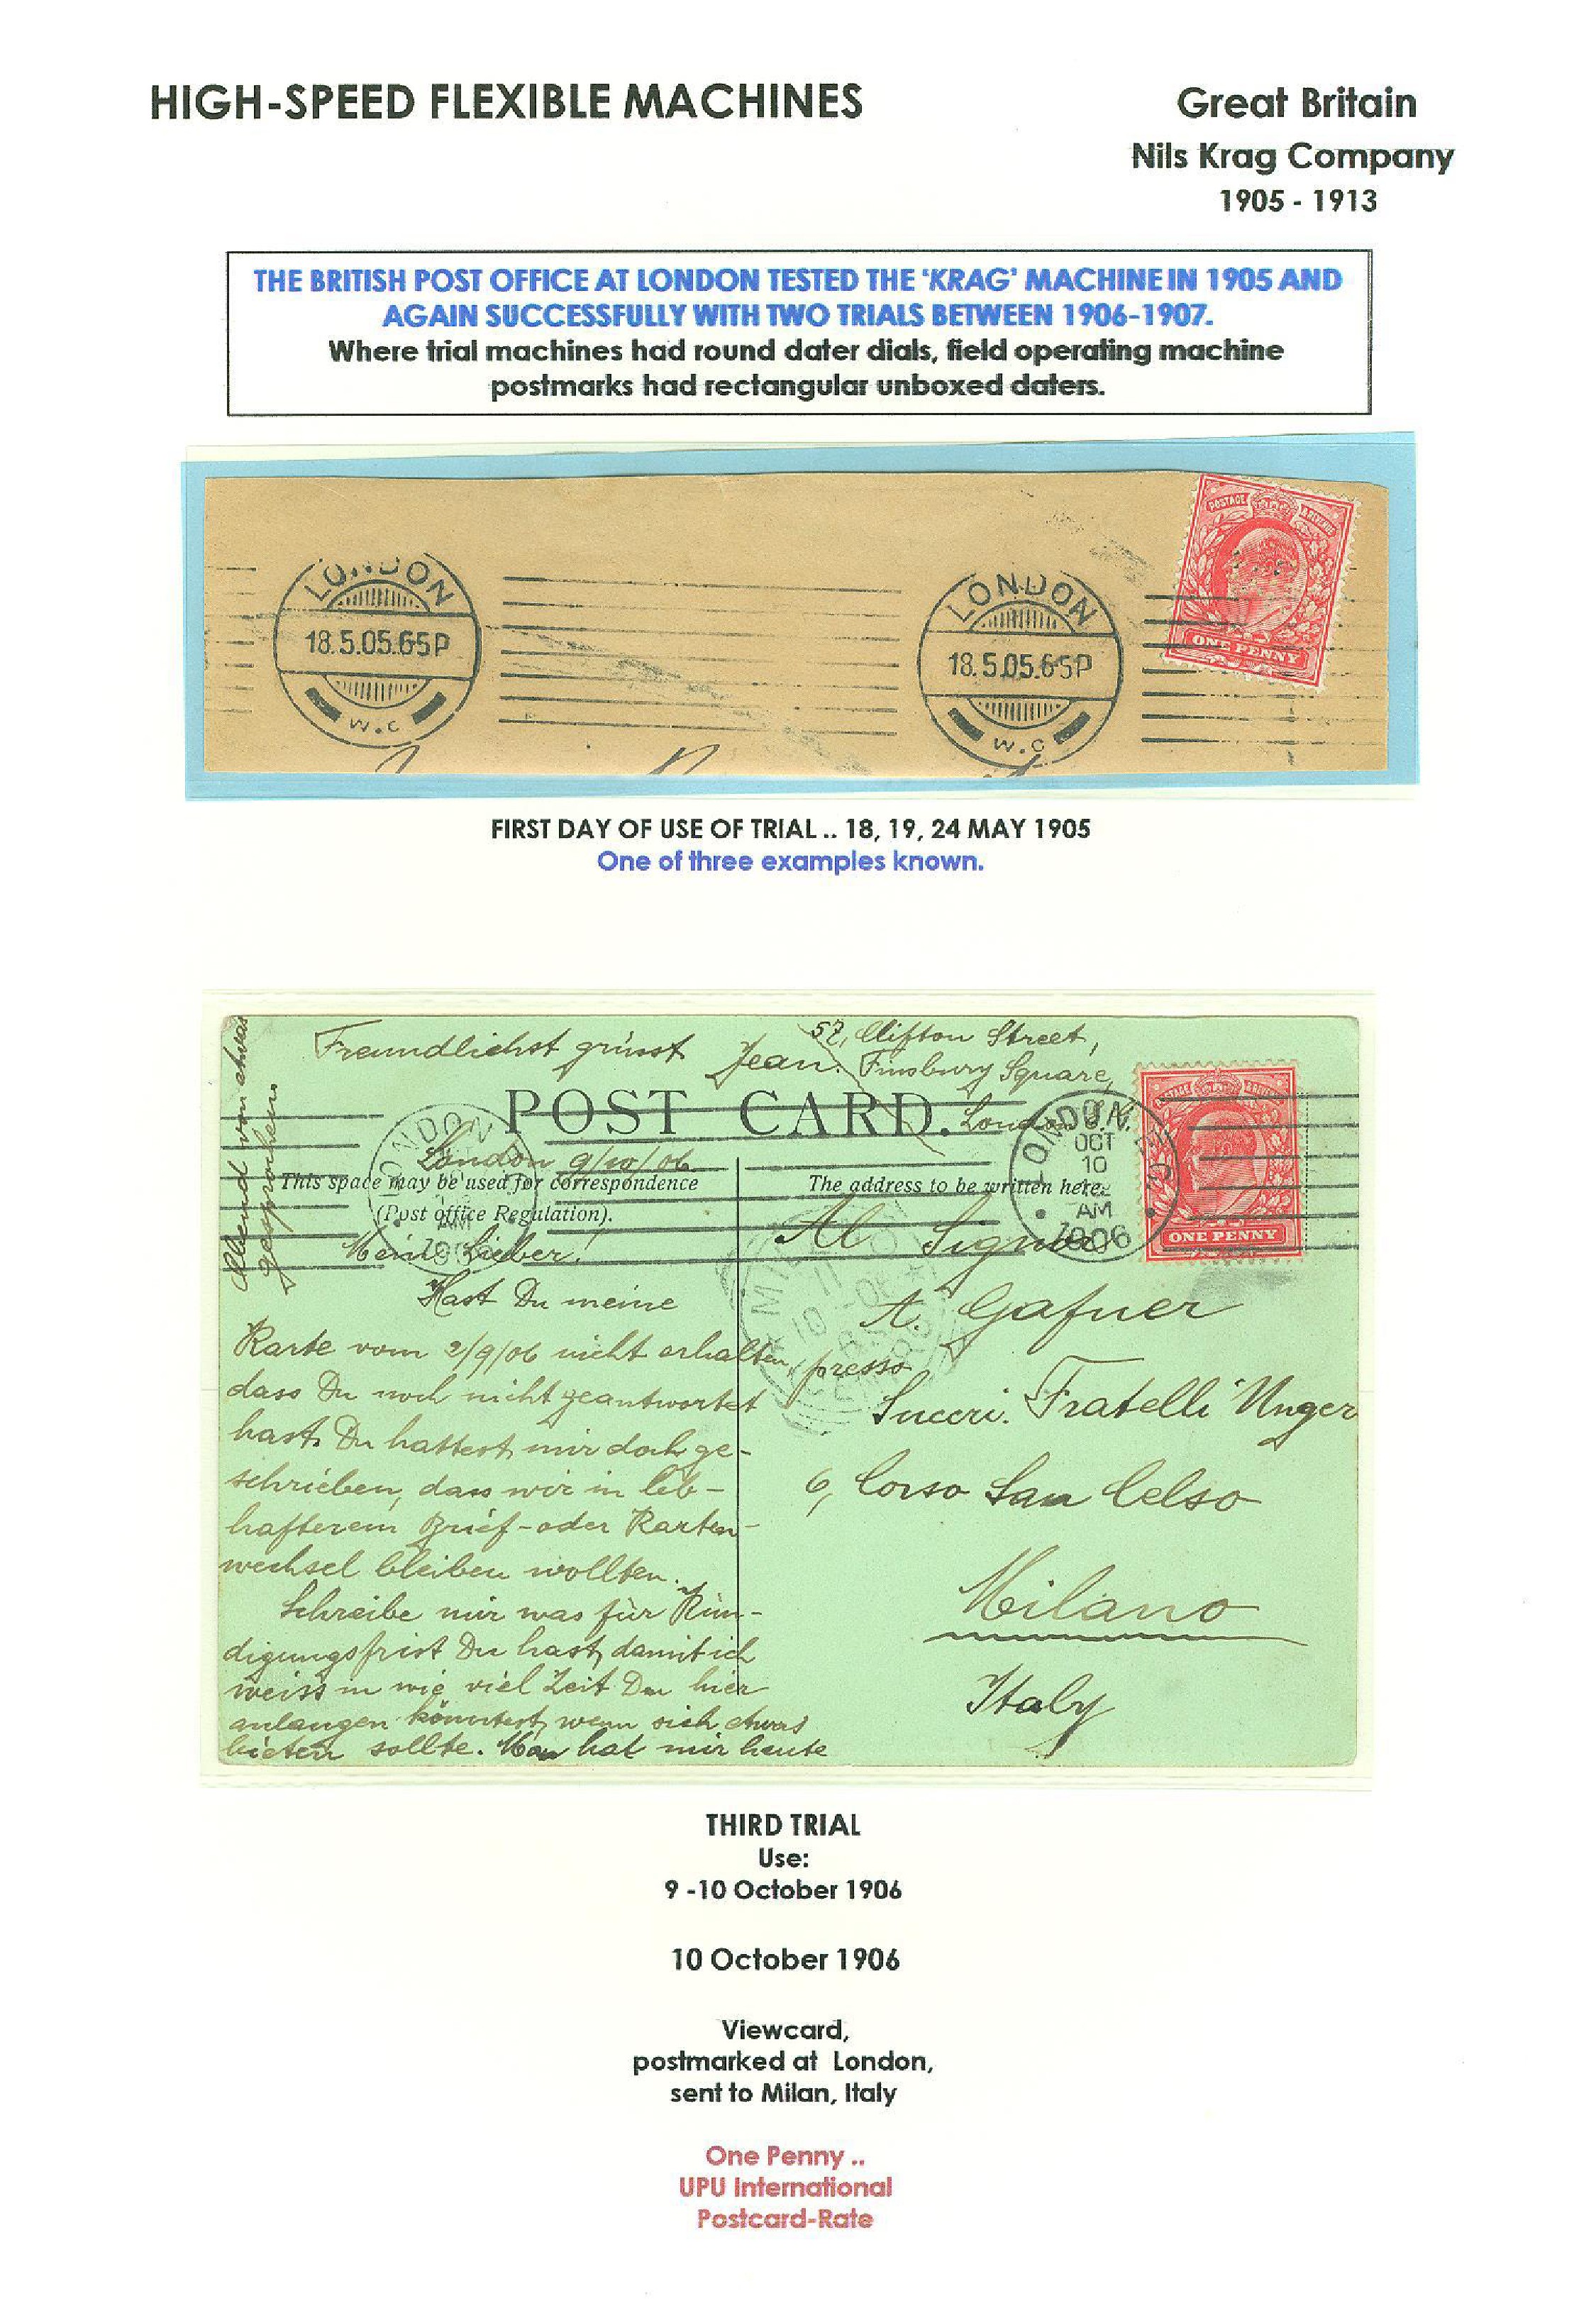 HIGH-SPEED FLEXIBLE MACHINES
Great Britain
Nils Krag Company
1905 - 1913
THE BRITISH POST OFFICE AT LONDON TESTED THE ‘KRAG’ MACHINE IN 1905 AND
AGAIN SUCCESSFULLY WITH TWO TRIALS BETWEEN 1906-1907.
Where trial machines had round dater dials, field operating machine
postmarks had rectangular unboxed daters.
LONDON
18.5.05.65P
W.C
LONDON
18.5.05.65P
W.C
POSTAGE REVENUE
ONE PENNY
FIRST DAY OF USE OF TRIAL .. 18, 19, 24 MAY 1905
One of three examples known.
Freundlichst grüsst Jean.
57, Clifton Street,
Finsbury Square,
London
POST CARD.
LONDON
LONDON
OCT
10
AM
1906
POSTAGE REVENUE
ONE PENNY
London 9/10/06
This space may be used for correspondence
(Post office Regulation).
The address to be written here.
Mein Lieber!
Hast Du meine
Karte vom 2/9/06 nicht erhalten,
dass Du noch nicht geantwortet
hast. Du hattest mir doch ge-
schrieben, dass wir in leb-
hafterem Brief- oder Karten-
wechsel bleiben wollten.
Schreibe mir was für Kün-
digungsfrist Du hast, damit ich
weiss in wie viel Zeit Du hier
anlangen könntest, wenn sich etwas
bieten sollte. Man hat mir heute
Abend von etwas
gesprochen
Al Signor
A. Gafner
presso
Succri. Fratelli Unger
6, Corso San Celso
Milano
Italy
THIRD TRIAL
Use:
9 -10 October 1906
10 October 1906
Viewcard,
postmarked at London,
sent to Milan, Italy
One Penny ..
UPU International
Postcard-Rate